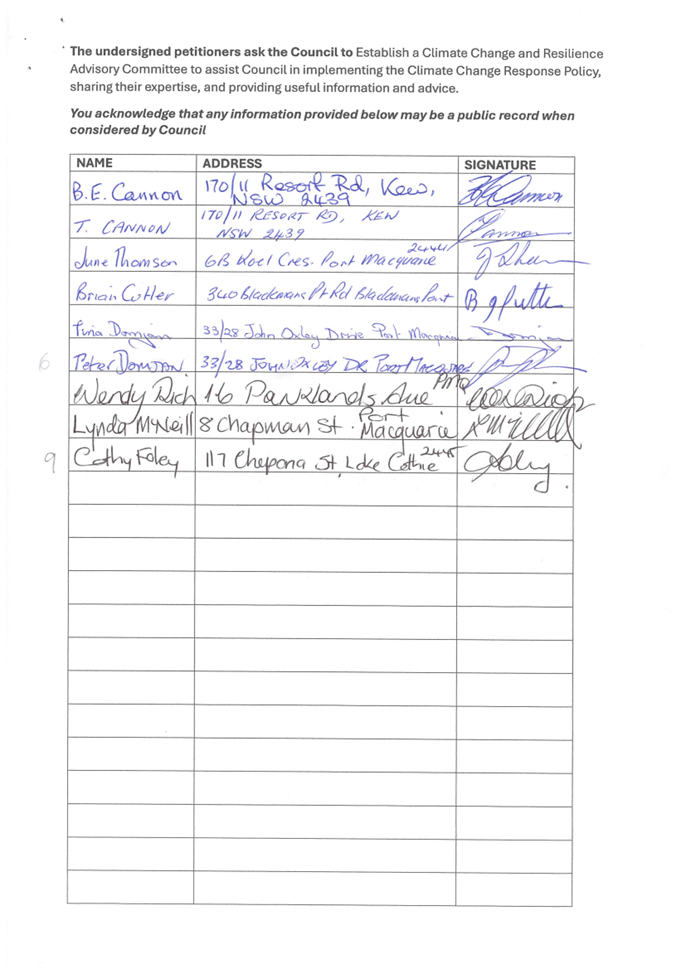 The undersigned petitioners ask the Council to Establish a Climate Change and Resilience
Advisory Committee to assist Council in implementing the Climate Change Response Policy,
sharing their expertise, and providing useful information and advice.
You acknowledge that any information provided below may be a public record when
considered by Council
NAME ADDRESS SIGNATURE
B.E. Cannon 170/11 Resort Rd, Kew,
NSW 2439
T. CANNON 170/11 RESORT RD, KEW
NSW 2439
June Thomson 6B Koel Cres. Port Macquarie 2444
Brian Cutler 340 Blackmans Pt Rd Blackmans Point
33/28 John Oxley Drive Port Macquarie
6 Peter 33/28 JOHN OXLEY DR PORT MACQUARIE
Wendy Rich 16 Parklands Ave PMQ
Lynda McNeill 8 Chapman St. Port
Macquarie
9 Cathy Foley 117 Chepana St Lake Cathie 2445